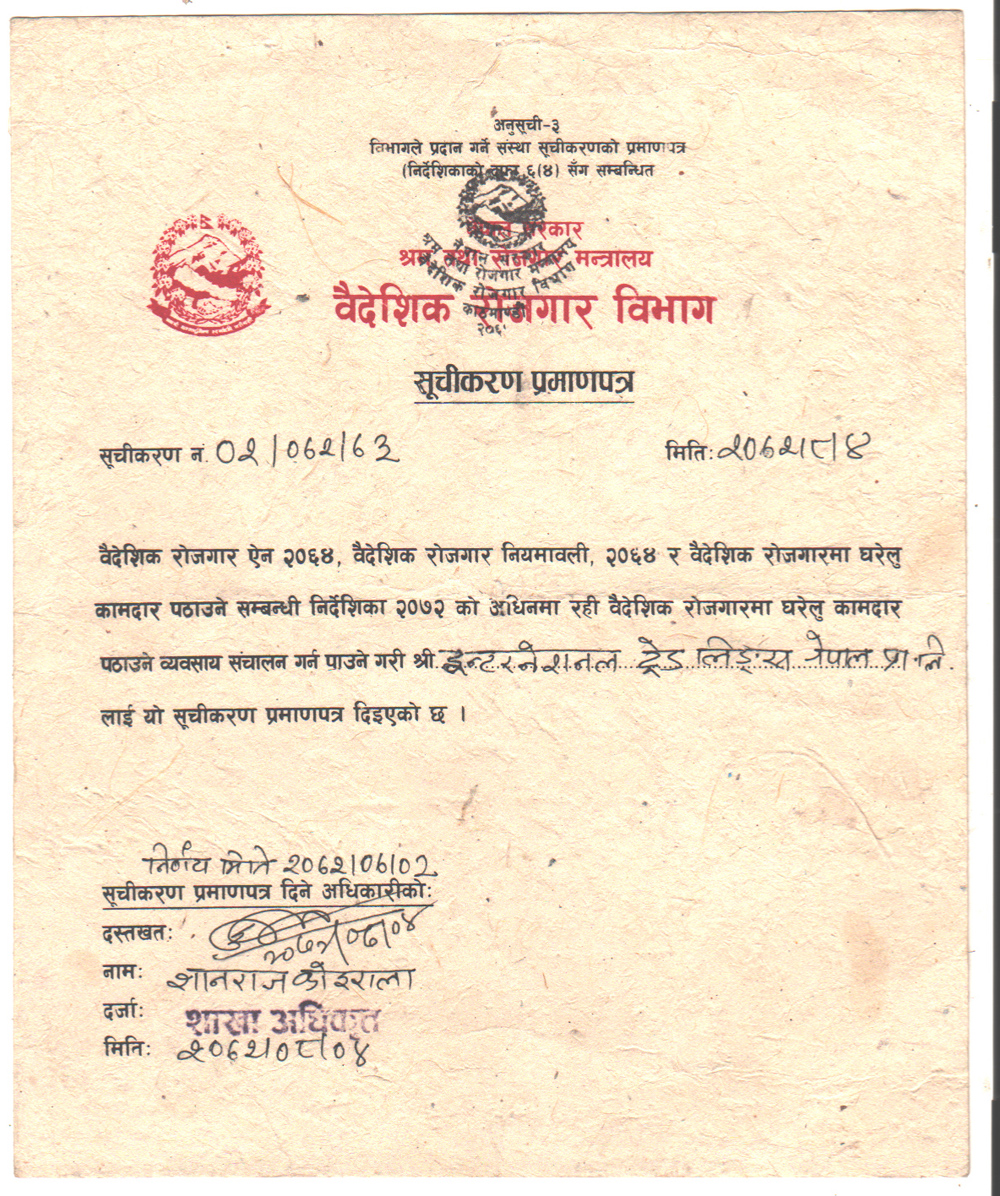 अनुसूची-३
विभागले प्रदान गर्ने संस्था सूचीकरणको प्रमाणपत्र
(निर्देशिकाको दफा ६(४) सँग सम्बन्धित
नेपाल सरकार
श्रम तथा रोजगार मन्त्रालय
वैदेशिक रोजगार विभाग
नेपाल सरकार
श्रम तथा रोजगार मन्त्रालय
वैदेशिक रोजगार विभाग
काठमाण्डौ
सूचीकरण प्रमाणपत्र
सूचीकरण नं. ०२/०७२/७३ मिति: २०७२/८/४
वैदेशिक रोजगार ऐन २०६४, वैदेशिक रोजगार नियमावली, २०६४ र वैदेशिक रोजगारमा घरेलु
कामदार पठाउने सम्बन्धी निर्देशिका २०७२ को अधिनमा रही वैदेशिक रोजगारमा घरेलु कामदार
पठाउने व्यवसाय संचालन गर्न पाउने गरी श्री. इन्टरनेशनल ट्रेड लिङ्क्स नेपाल प्रा.लि.
लाई यो सूचीकरण प्रमाणपत्र दिइएको छ ।
निर्णय मिति २०७२/०७/०२
सूचीकरण प्रमाणपत्र दिने अधिकारीको:
दस्तखत: २०७२/०८/०४
नाम: ज्ञानराज कोइराला
दर्जा: शाखा अधिकृत
मिति: २०७२/०८/०४